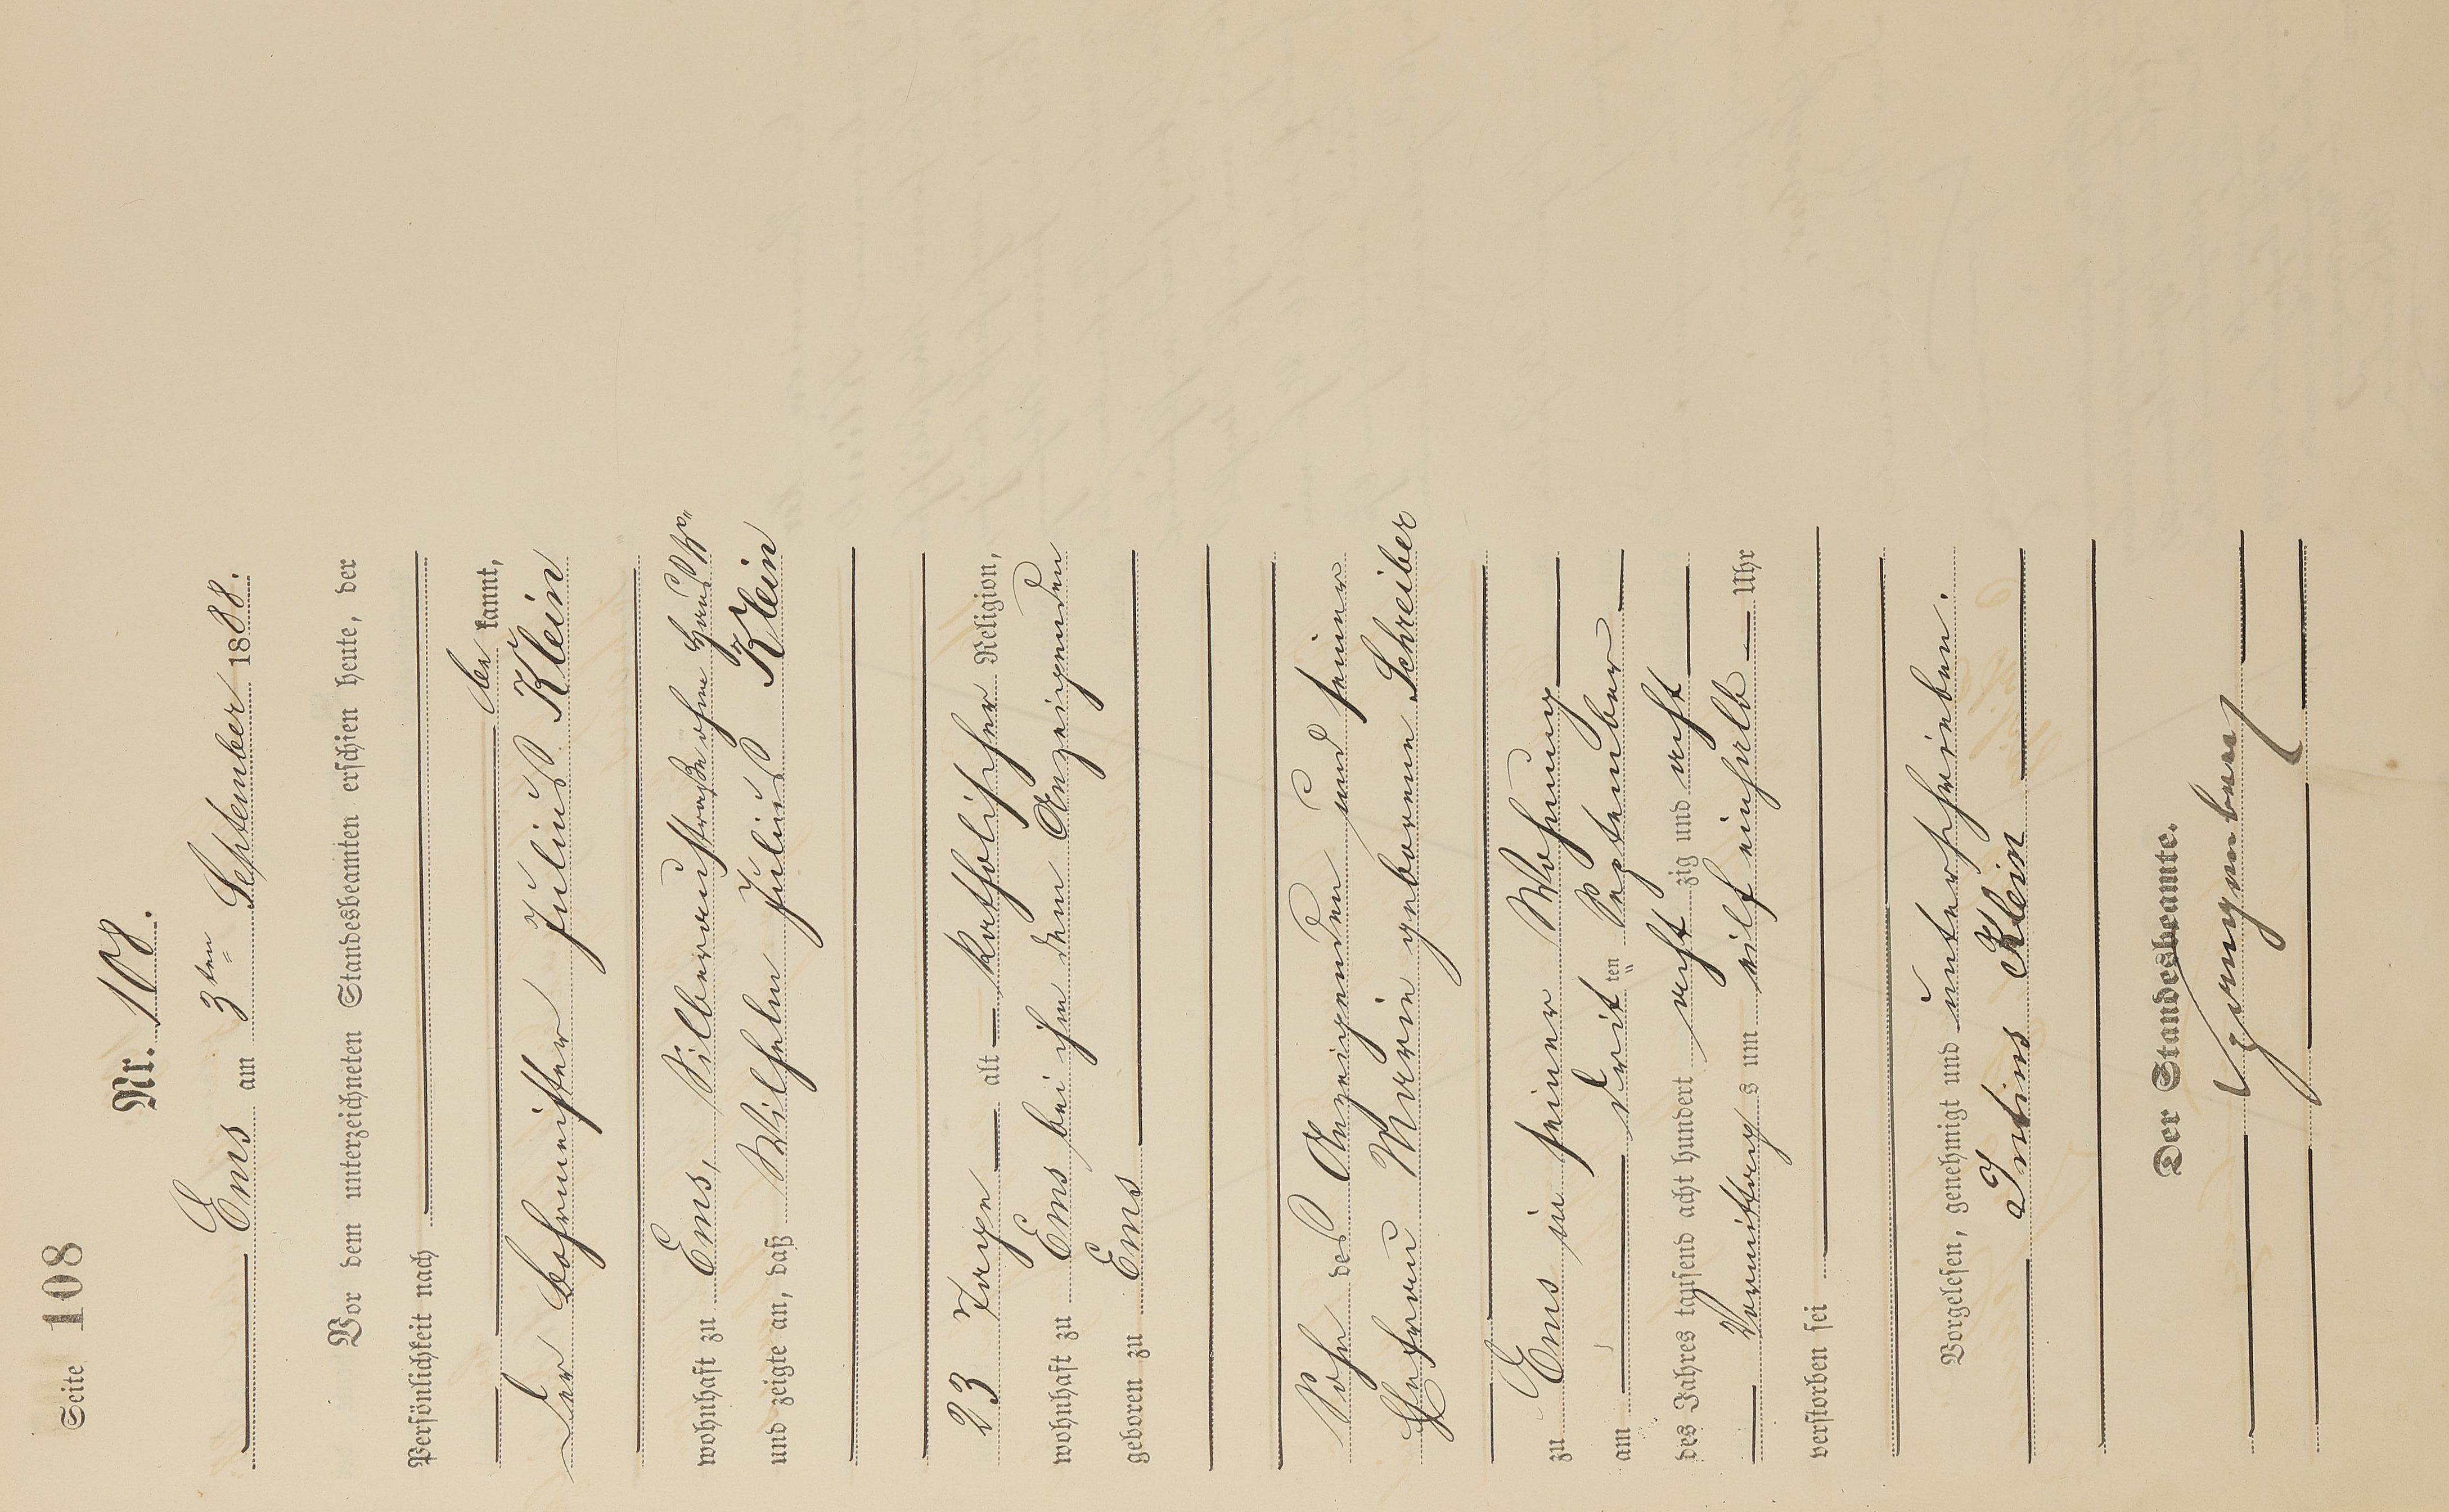 Seite 108
Nr. 108.
Ems am 3ten September 1888.
Vor dem unterzeichneten Standesbeamten erschien heute, der
Persönlichkeit nach
be kannt,
der Bahnmeister Julius Klein
wohnhaft zu Ems, Silberaustraße ohne Haus No
und zeigte an, daß Wilhelm Julius Klein
23 Tage alt katholischer Religion,
wohnhaft zu Ems bei ihm dem Anzeigenden
geboren zu Ems
Sohn des Anzeigenden und seiner
Ehefrau Maria geborenen Schreiber
zu Ems in seiner Wohnung
am dritten September
des Jahres tausend acht hundert acht zig und acht
Vormittag s um elf einhalb Uhr
verstorben sei
Vorgelesen, genehmigt und unterschrieben.
Julius Klein
Der Standesbeamte.